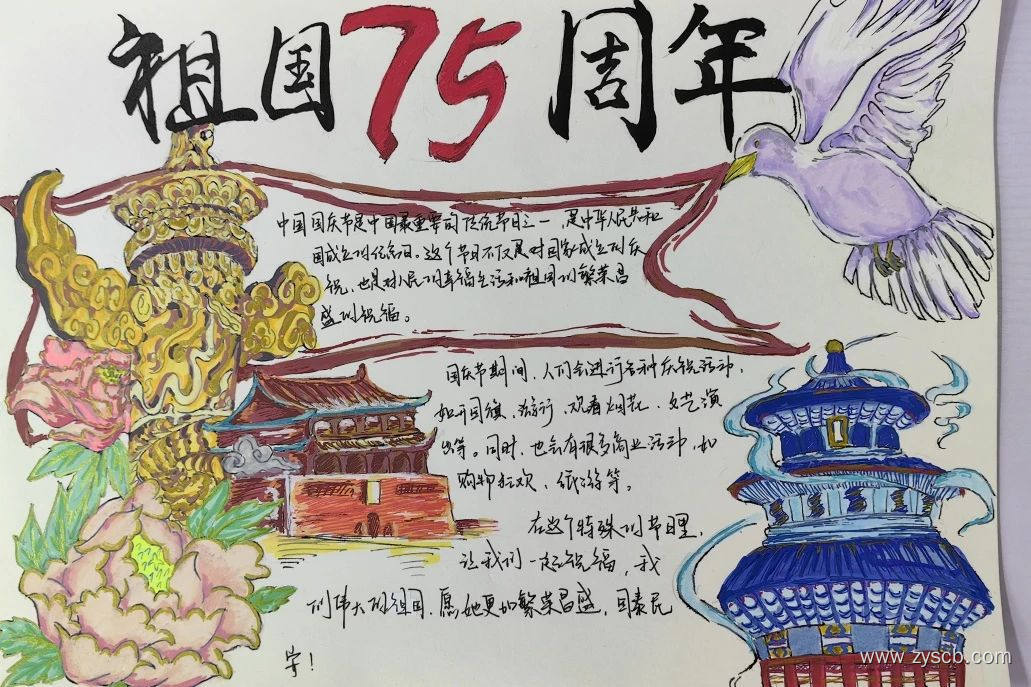 祖国75周年
中国国庆节是中国最重要的传统节日之一，是中华人民共和
国成立的纪念日。这个节日不仅是对国家成立的庆
祝，也是对人民的幸福生活和祖国的繁荣昌
盛的祝福。
国庆节期间，人们会进行各种庆祝活动，
如升国旗、游行、观看烟花、文艺演
出等。同时，也会有很多商业活动，如
购物狂欢、低游等。
在这个特殊的节日里，
让我们一起祝福，我
们伟大的祖国，愿她更加繁荣昌盛，国泰民
安！
www.zyscb.com